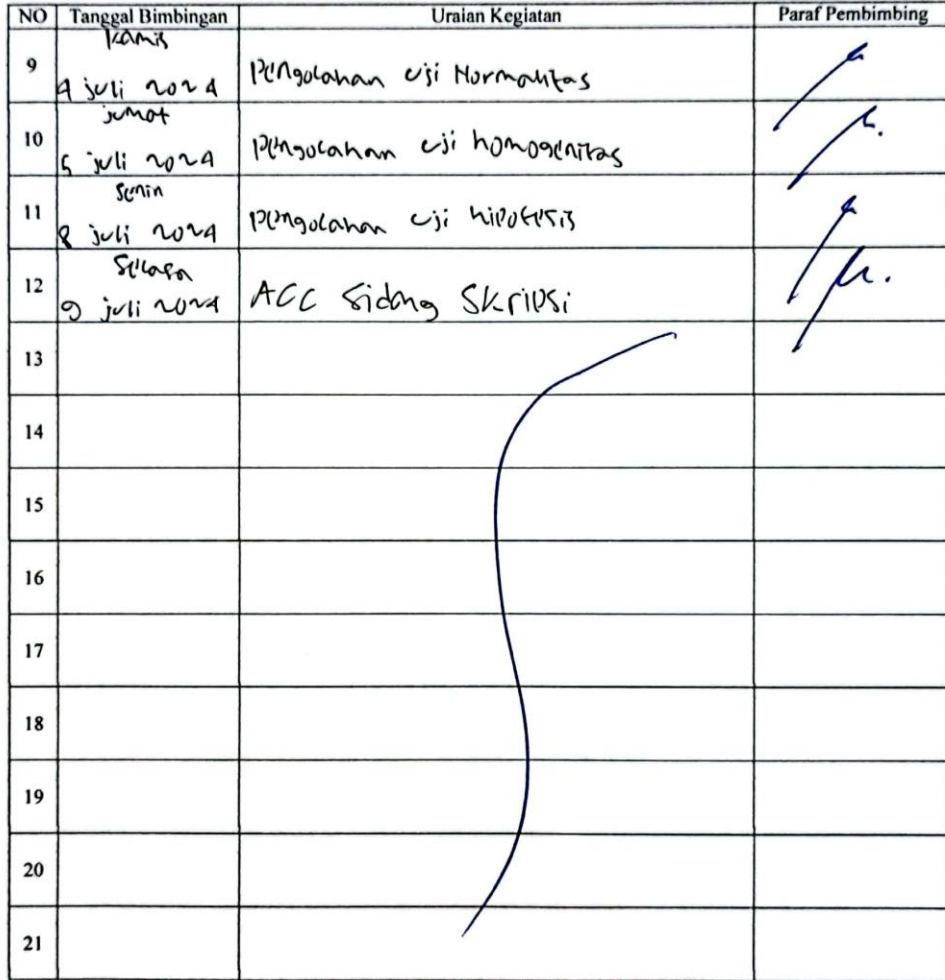 NO Tanggal Bimbingan Uraian Kegiatan Paraf Pembimbing
Kamis
9 4 juli 2024 Pengolahan uji Normalitas
jumat
10 5 juli 2024 Pengolahan uji homogenitas
Senin
11 8 juli 2024 Pengolahan uji hipotesis
Selasa
12 9 juli 2024 ACC Sidang Skripsi
13
14
15
16
17
18
19
20
21